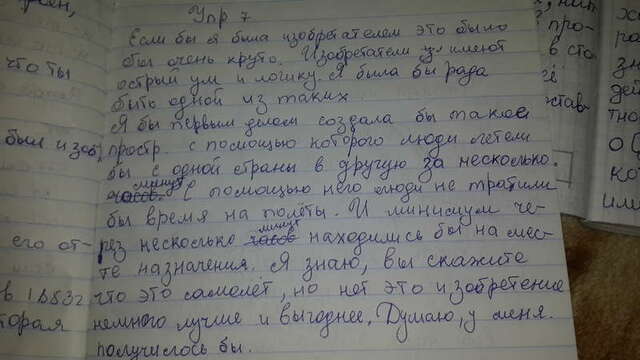 Упр 7
Если бы я была изобретателем это было
бы очень круто. Изобретатели имеют
острый ум и логику. Я была бы рада
быть одной из таких.
Я бы первым делом создала бы такое
простр. с помощью которого люди летели
бы с одной страны в другую за несколько
минут
часов. С помощью него люди не тратили
бы время на полёты. И минимум че-
минут
рез несколько часов находились бы на мес-
те назначения. Я знаю, вы скажите
что это самолёт, но нет это изобретение
немного лучше и выгоднее. Думаю, у меня
получилось бы.
что ты
был изоб
его от-
в 1883г
торая